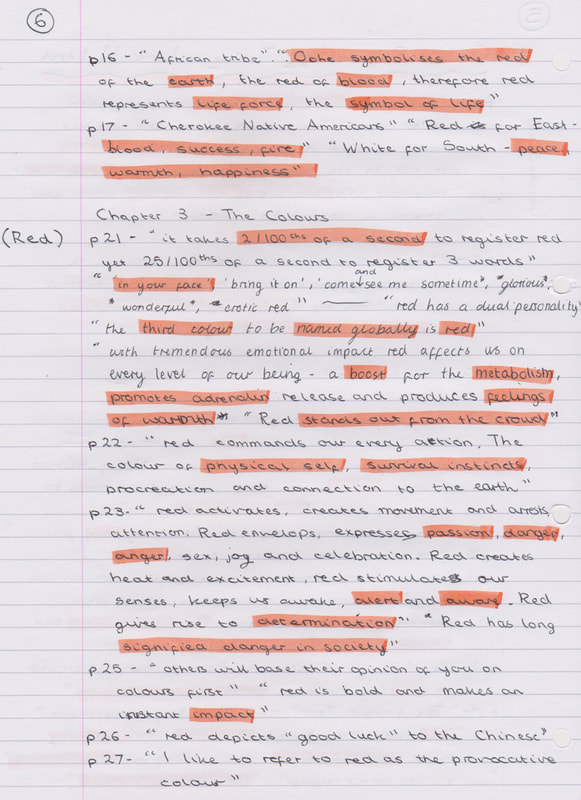 6
p16 - "African tribe" ". Oche symbolises the red
of the earth, the red of blood, therefore red
represents life force, the symbol of life"
p17 - "Cherokee Native Americans" "Red for East -
blood, success, fire" "White for South - peace,
warmth, happiness"
Chapter 3 - The Colours
(Red) p.21 - "it takes 21/100ths of a second to register red
yet 251/100ths of a second to register 3 words"
"'in your face', 'bring it on', 'come and see me sometime', "glorious",
"wonderful", "erotic red" — "red has a dual personality"
"the third colour to be named globally is red"
"with tremendous emotional impact red affects us on
every level of our being - a boost for the metabolism,
promotes adrenalin release and produces feelings
of warmth" "Red stands out from the crowd"
p22 - "red commands our every action. The
colour of physical self, survival instincts,
procreation and connection to the earth"
p23 - "red activates, creates movement and arrests
attention. Red envelops, expresses passion, danger,
anger, sex, joy and celebration. Red creates
heat and excitement, red stimulates our
senses, keeps us awake, alert and aware. Red
gives rise to determination". "Red has long
signified danger in society"
p25 - "others will base their opinion of you on
colours first" "red is bold and makes an
instant impact"
p26 - "red depicts "good luck" to the Chinese"
p27 - "I like to refer to red as the provocative
colour"